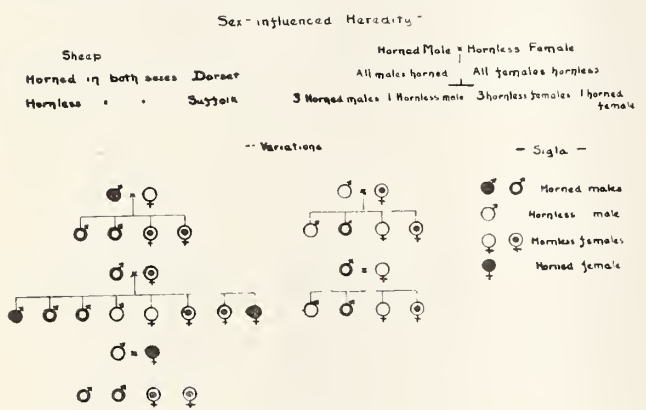 Sex-influenced Heredity-
Sheep
Horned in both sexes Dorset
Hornless " " Suffolk
Horned Male × Hornless Female
All males horned All females hornless
3 Horned males 1 Hornless male 3 hornless females 1 horned female
-- Variations
- Sigla -
Horned males
Hornless male
Hornless females
Horned female